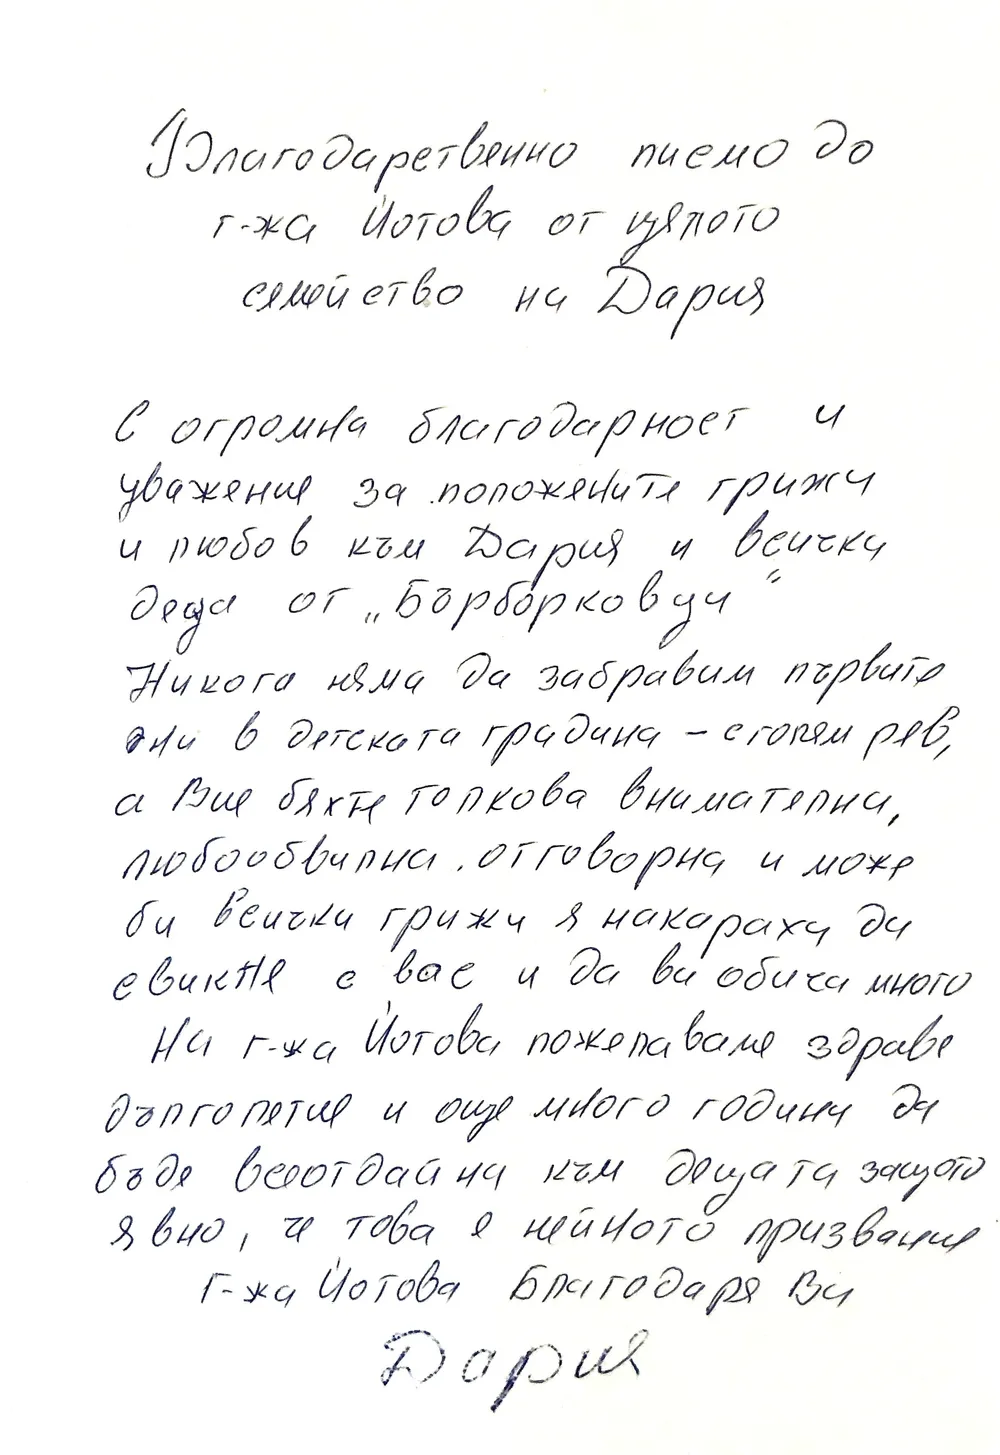 Благодарствено писмо до
г-жа Йотова от цялото
семейство на Дария
С огромна благодарност и
уважение за положените грижи
и любов към Дария и всички
деца от „Бърборковци“
Никога няма да забравим първите
дни в детската градина - с голям рев,
а Вие бяхте толкова внимателна,
любообвилна, отговорна и може
би всички грижи я накараха да
свикне с вас и да ви обича много
На г-жа Йотова пожелаваме здраве
дълголетие и още много години да
бъде всеотдайна към децата защото
явно, че това е нейното призвание
Г-жа Йотова Благодаря Ви
Дария